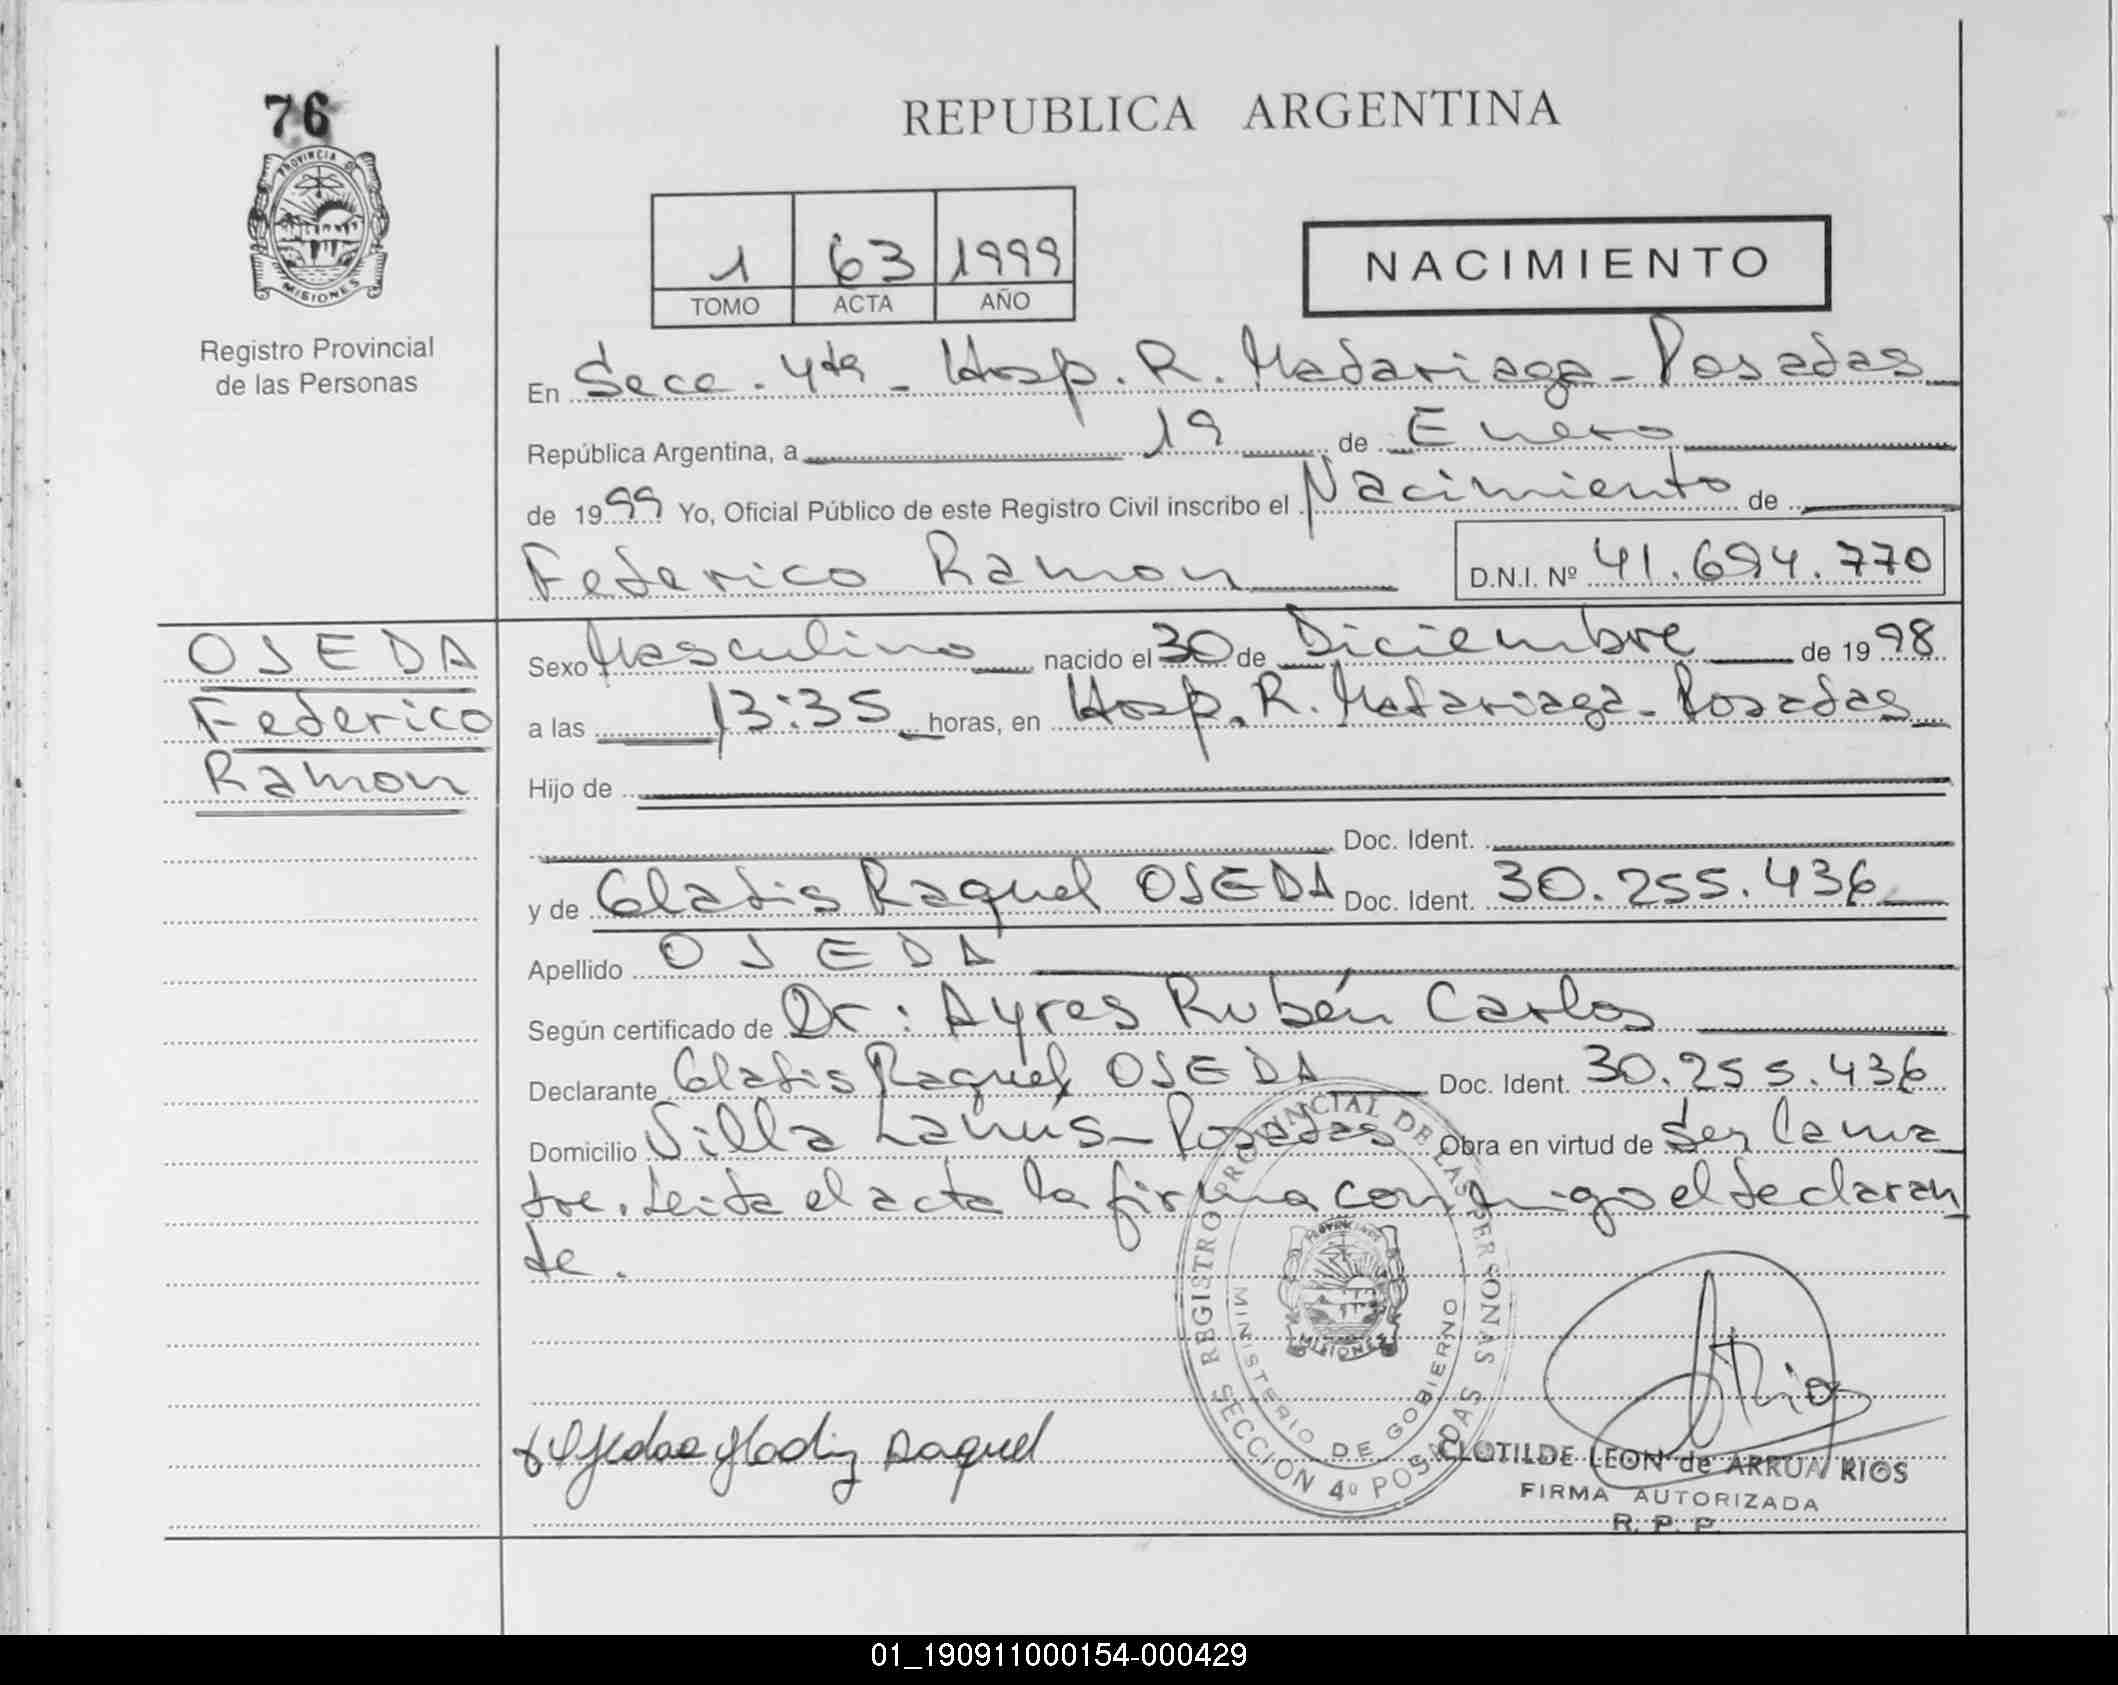 76
PROVINCIA DE
MISIONES
Registro Provincial
de las Personas
REPUBLICA ARGENTINA
1 63 1999
TOMO ACTA AÑO
NACIMIENTO
En Secc. 4ta - Hosp. R. Madariaga - Posadas
República Argentina, a 19 de Enero
de 1999 Yo, Oficial Público de este Registro Civil inscribo el Nacimiento de
Federico Ramon D.N.I. Nº 41.694.770
OJEDA
Federico
Ramon
Sexo Masculino nacido el 30 de Diciembre de 1998
a las 13:35 horas, en Hosp. R. Madariaga - Posadas
Hijo de
Doc. Ident.
y de Gladis Raquel OJEDA Doc. Ident. 30.255.436
Apellido OJEDA
Según certificado de Dr: Ayres Rubén Carlos
Declarante Gladis Raquel OJEDA Doc. Ident. 30.255.436
Domicilio Villa Lanús - Posadas Obra en virtud de Ser la ma
dre. Leida el acta la firma conmigo el declaran
te.
REGISTRO PROVINCIAL DE LAS PERSONAS
MINISTERIO DE GOBIERNO
SECCION 4º POSADAS
MISIONES
Ojeda Gladiz Raquel
CLOTILDE LEON de ARRUA RIOS
FIRMA AUTORIZADA
R. P. P.
01_190911000154-000429